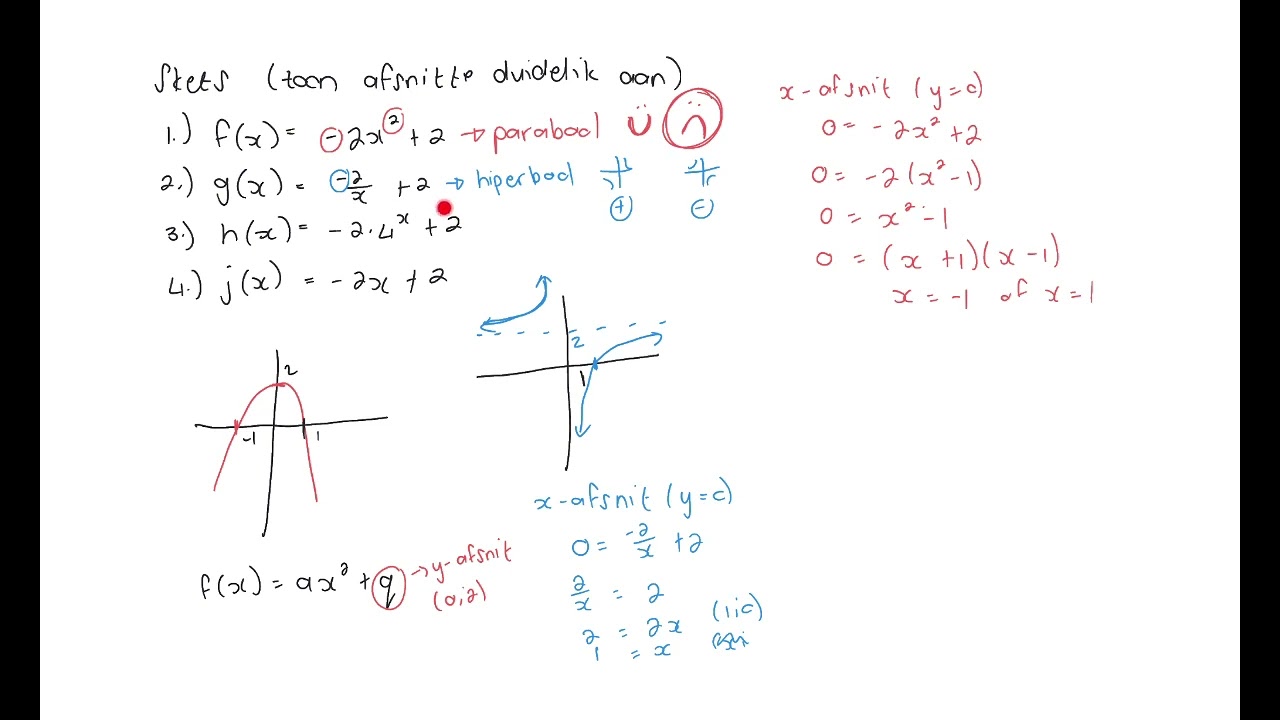 Skets (toon afsnitte duidelik aan)
1.) f(x) = -2x² + 2 → parabool
2.) g(x) = -2/x + 2 → hiperbool
+ -
3.) h(x) = -2.4^x + 2
4.) j(x) = -2x + 2
x-afsnit (y=0)
0 = -2x² + 2
0 = -2(x² -1)
0 = x² -1
0 = (x +1)(x -1)
x = -1 of x = 1
2
-1 1
2
1
f(x) = ax² + q → y-afsnit
(0;2)
x-afsnit (y=0)
0 = -2/x + 2
2/x = 2
2 = 2x (1;0)
1 = x